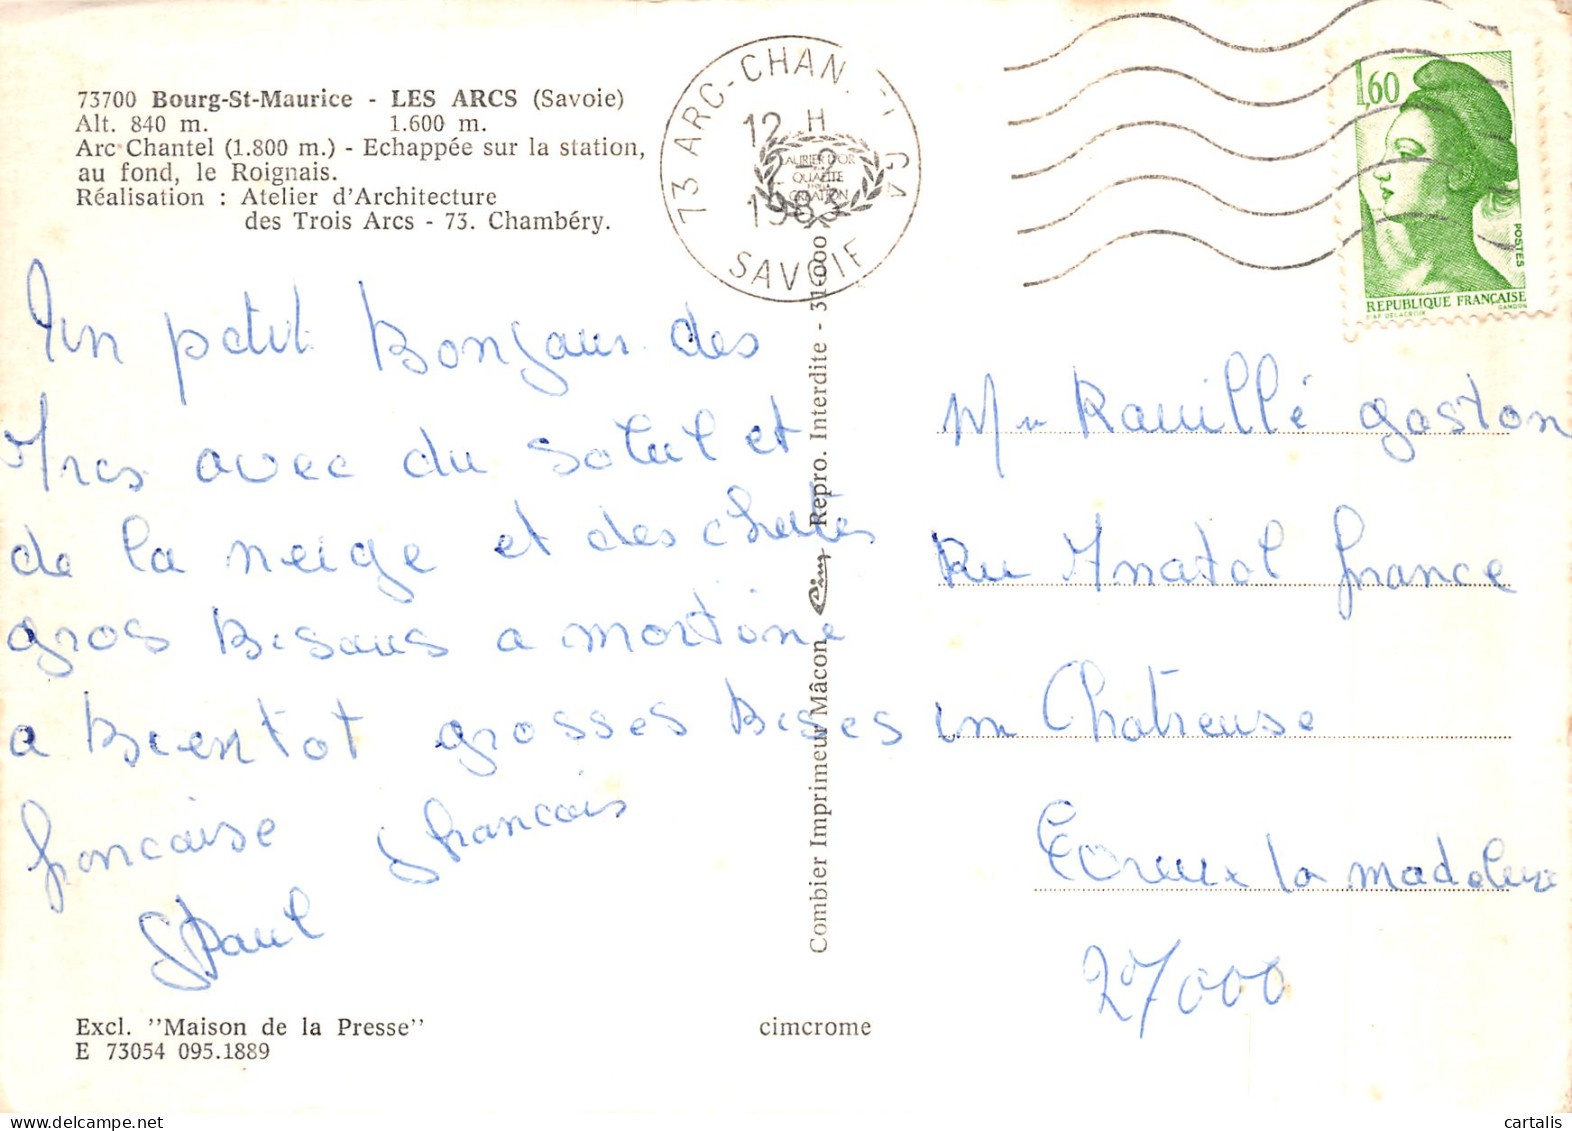 73700 Bourg-St-Maurice - LES ARCS (Savoie)
Alt. 840 m. 1.600 m.
Arc Chantel (1.800 m.) - Echappée sur la station,
au fond, le Roignais.
Réalisation : Atelier d'Architecture
des Trois Arcs - 73. Chambéry.
Un petit Bonjour des
Arcs avec du soleil et
de la neige et des chutes
gros Bisous a martine
a Bientot grosses Bises
francaise francais
Paul
Excl. "Maison de la Presse"
E 73054 095.1889
cimcrome
Combier Imprimeur Mâcon Cim Repro. Interdite - 31000
73 ARC-CHAN GA
12 H
7-2
1983
SAVOIE
LAURIER D'OR
QUALITE
CREATION
1,60
POSTES
REPUBLIQUE FRANÇAISE
D'AP. DELACROIX GANDON
Mr Rauillé gaston
Rue Anatol france
im Chatreuse
Evreux la madeleine
27000
cartalis